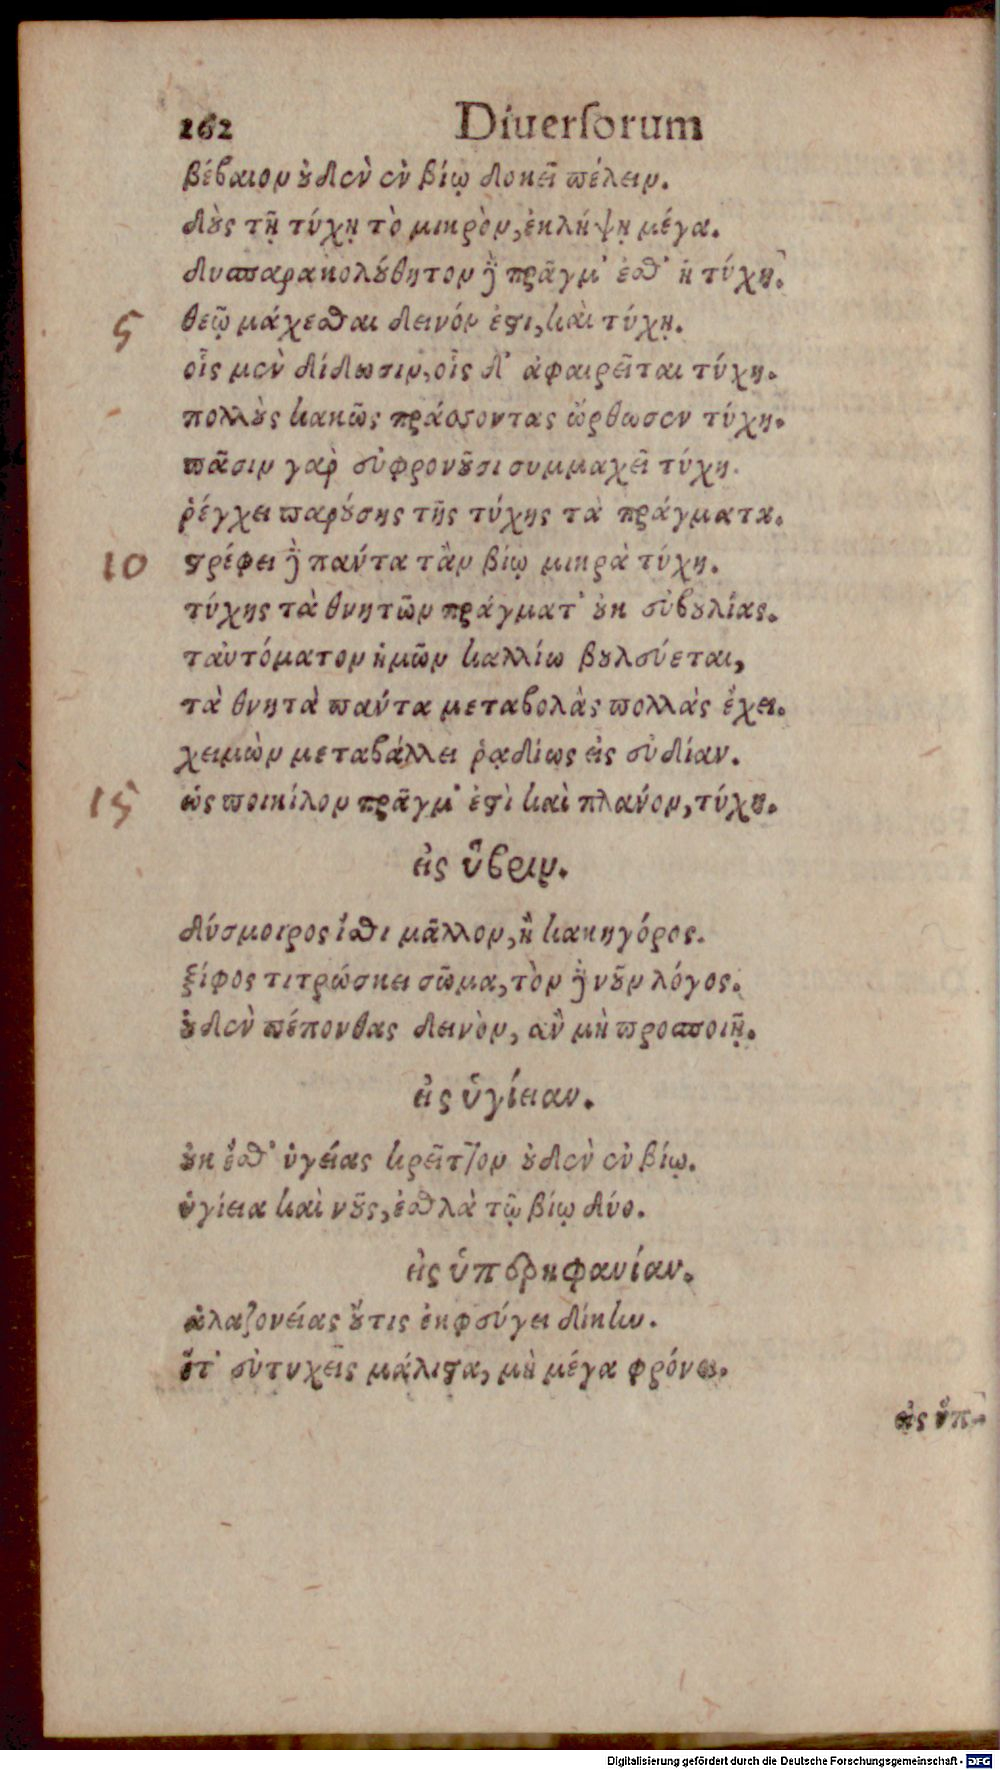 262 Diuerſorum
βέβαιον οὐδὲν ἐν βίῳ δοκεῖ πέλειν.
δοὺς τῇ τύχῃ τὸ μικρὸν, ἐκλήψῃ μέγα.
δυσπαρακολούθητον δὲ πρᾶγμ' ἐσθ' ἡ τύχη.
5 θεῷ μάχεσθαι δεινόν ἐστι, καὶ τύχῃ.
οἷς μὲν δίδωσιν, οἷς δ' ἀφαιρεῖται τύχη.
πολλοὺς κακῶς πράσσοντας ὤρθωσεν τύχη.
πᾶσιν γαρ εὐφρονοῦσι συμμαχεῖ τύχη.
ῥέγχει παρούσης τῆς τύχης τὰ πράγματα.
10 στρέφει δὲ πάντα τἀν βίῳ μικρὰ τύχη.
τύχης τὰ θνητῶν πράγματ' οὐκ εὐβουλίας.
ταὐτόματον ἡμῶν καλλίω βουλεύεται,
τὰ θνητὰ πάντα μεταβολὰς πολλὰς ἔχει.
χειμὼν μεταβάλλει ῥᾳδίως εἰς εὐδίαν.
15 ὡς ποικίλον πρᾶγμ' ἐστὶ καὶ πλάνον, τύχη.
εἰς ὕβριν.
δύσμοιρος ἴσθι μᾶλλον, ἢ κακηγόρος.
ξίφος τιτρώσκει σῶμα, τὸν δὲ νοῦν λόγος.
οὐδὲν πέπονθας δεινὸν, ἂν μὴ προσποιῇ.
εἰς ὑγίειαν.
οὐκ ἔσθ' ὑγείας κρεῖττον οὐδὲν ἐν βίῳ.
ὑγίεια καὶ νοῦς, ἐσθλὰ τῷ βίῳ δύο.
εἰς ὑπερηφανίαν.
ἀλαζονείας οὔτις ἐκφεύγει δίκην.
ὅτ' εὐτυχεῖς μάλιστα, μὴ μέγα φρόνει.
εἰς ὑπ-
Digitalisierung gefördert durch die Deutsche Forschungsgemeinschaft - DFG